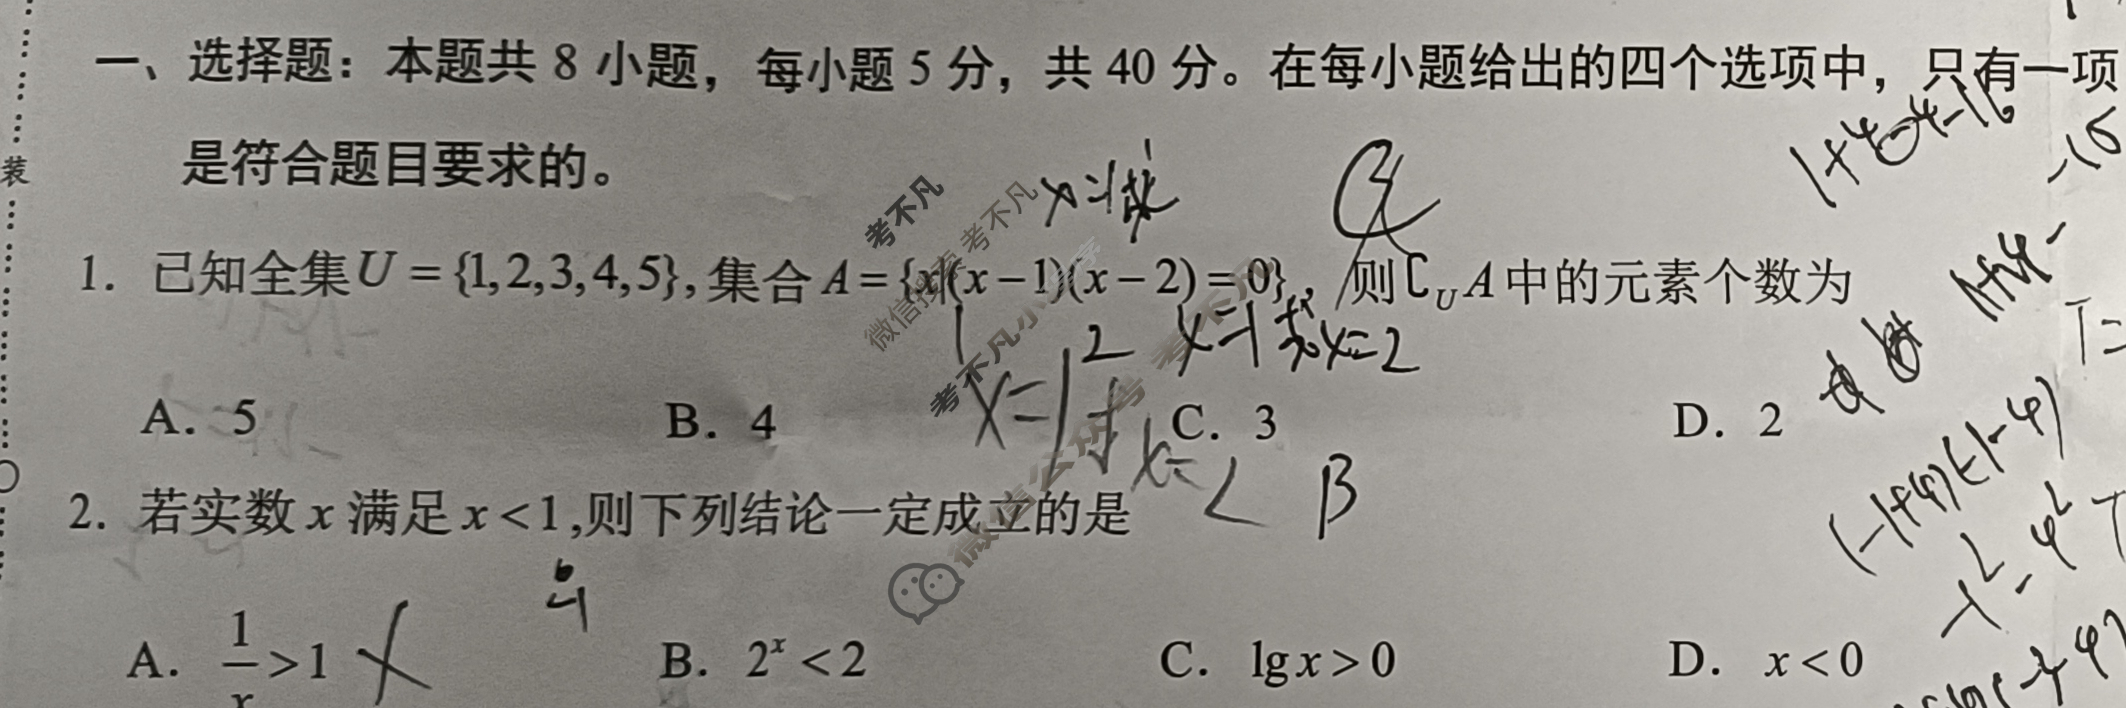 一、选择题：本题共 8 小题，每小题 5 分，共 40 分。在每小题给出的四个选项中，只有一项
是符合题目要求的。
装
1. 已知全集U={1,2,3,4,5},集合A={x|(x-1)(x-2)=0}，则∁_U A中的元素个数为
1 2 x=1或x=2
A. 5 B. 4 C. 3 D. 2
x=1或x=2
2. 若实数 x 满足 x<1,则下列结论一定成立的是 B
A. 1/x>1 B. 2^x<2 C. lg x>0 D. x<0
考不凡
考不凡
考不凡
考不凡小
微信公众号
1+4-4-16
-16
(-1+φ)(-1-φ)